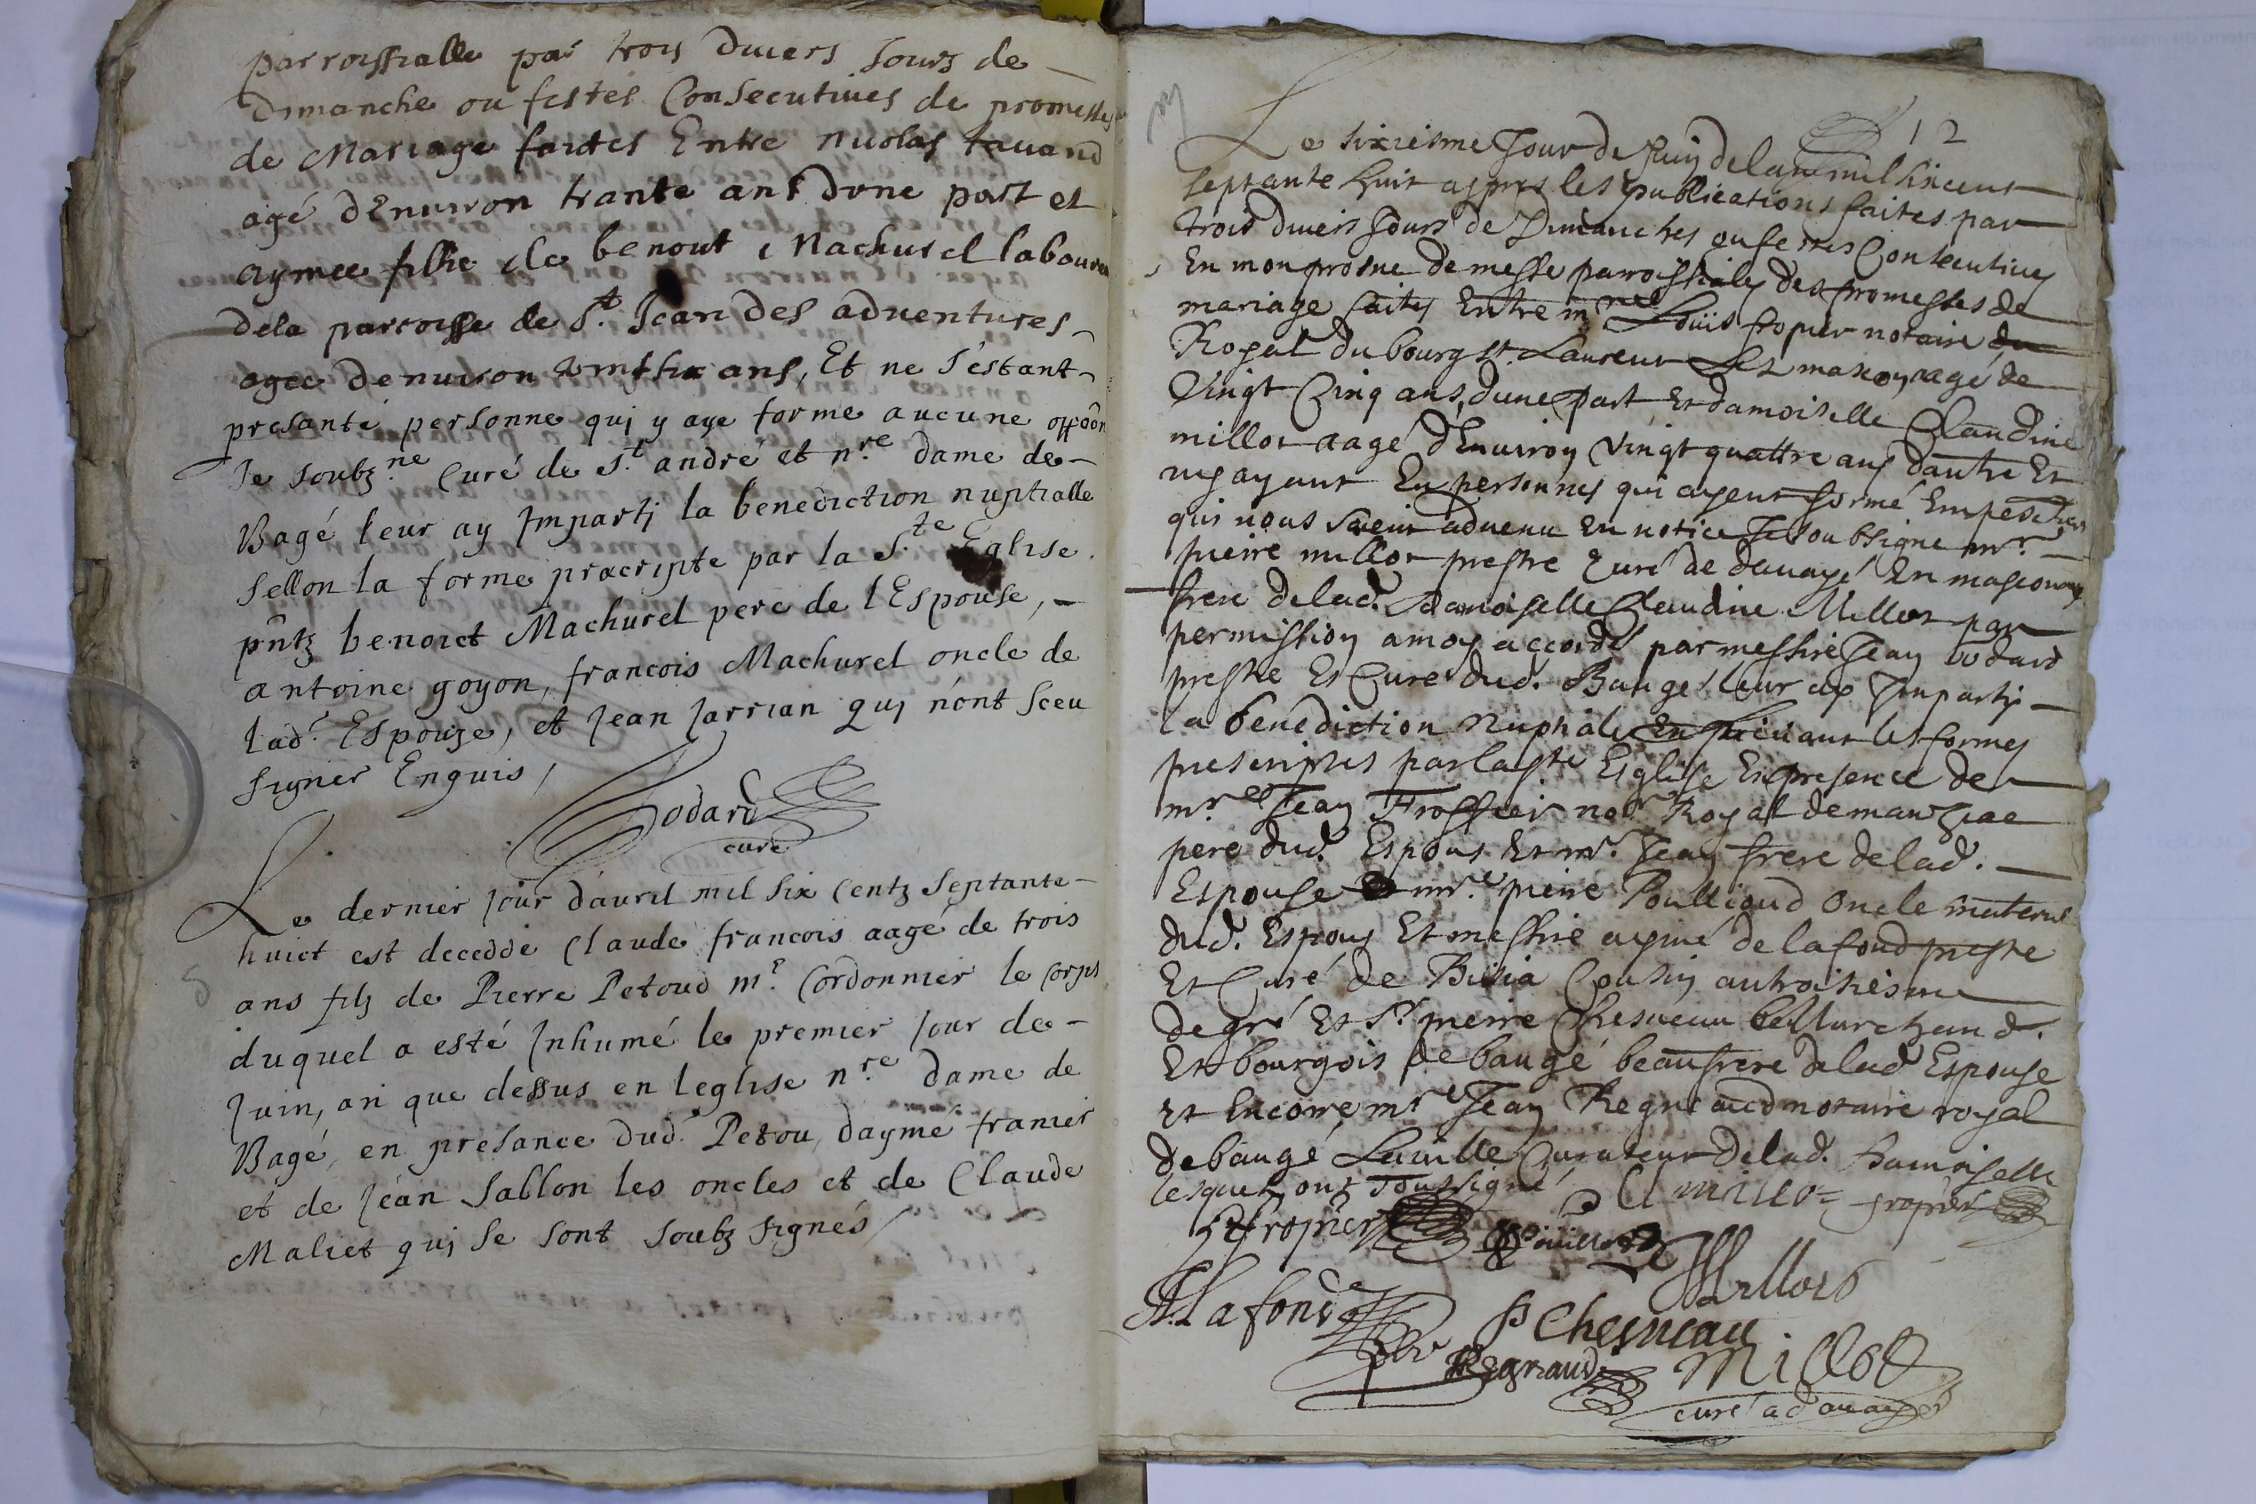 parroissialle par trois divers Jours de
dimanche ou festes Consecutives de promesses
de Mariage faictes Entre nicolas tavand
agé dEnuiron trante ans dune part et
aymee fille de benoict Machurel laboureur
dela parroisse de St. Jean des adventures
agee denuiron vint six ans, Et ne s'estant
presanté personne qui y aye formé aucune oppôon
Je soubz.né Curé de St. andré et n.re dame de
Bagé leur ay Imparti la benediction nuptialle
sellon la forme praecripte par la S.te Eglise.
pñtz benoict Machurel pere de lEspouse,
antoine goyon, francois Machurel oncle de
lad.e Espouze, et Jean Jarrian qui n'ont sceu
signer Enquis /
Godard
curé
Le dernier Jour d'auril mil six Centz septante
huict est deceddé Claude francois aagé de trois
ans filz de Pierre Petoud m.e Cordonnier le Corps
duquel a esté Inhumé le premier Jour de
Juin, an que dessus en leglise n.re dame de
Bagé, en presance dud. Petou, daymé franier
et de Jean Sallon les oncles et de Claude
Maliet qui se sont soubz signés /
12
Le sixiesme Jour de Juin de lan mil six cent
septante huit appres les publications faites par
trois divers Jours de Dimanches ou festes Consecutives
En mon prosne de messe parroissiales des promesses de
mariage faites Entre m.re Louis fropier notaire du
Royal du bourg St. Laurent Les mascon, aagé de
Vingt Cinq ans, dune part Et damoiselle Claudine
millot aagé d'Enuiron Vingt quattre ans dautre Et
ny ayant Eu personnes qui ayent formé Empeschem
qui nous soient advenu En notice Je soubsigné mr.
pierre millot prestre Curé de davayé En masconnois
frere delad. damoiselle Claudine Millot par
permission a moy accordé par messire Jean Godard
prestre Et Curé dud. Baugé leur ay Imparti
la benediction Nuptiale En suivant les formes
prescriptes par la ste Esglise En presence de
m.re Jean Froppier no.re Royal de manziat
pere dud. Espous Et mr. Jean frere delad.
Espouse Et mr.e pierre Poullioud Oncle maternel
dud. Espous Et messire aymé de lafond prestre
Et Curé de Bisia Cousin au troisiesme
degré Et Sr. pierre Chesneau marchand.
Et bourgois de baugé beaufrere delad. Espouse
Et Encorre mr.e Jean Regnaud notaire royal
de baugé La ville Curateur delad. Damoiselle
lesquels ont soussigné
Cl millot fropier
fropier Pouilloud
Millot
A. Lafond P Chesneau
Regnaud Millot
curé a davayé